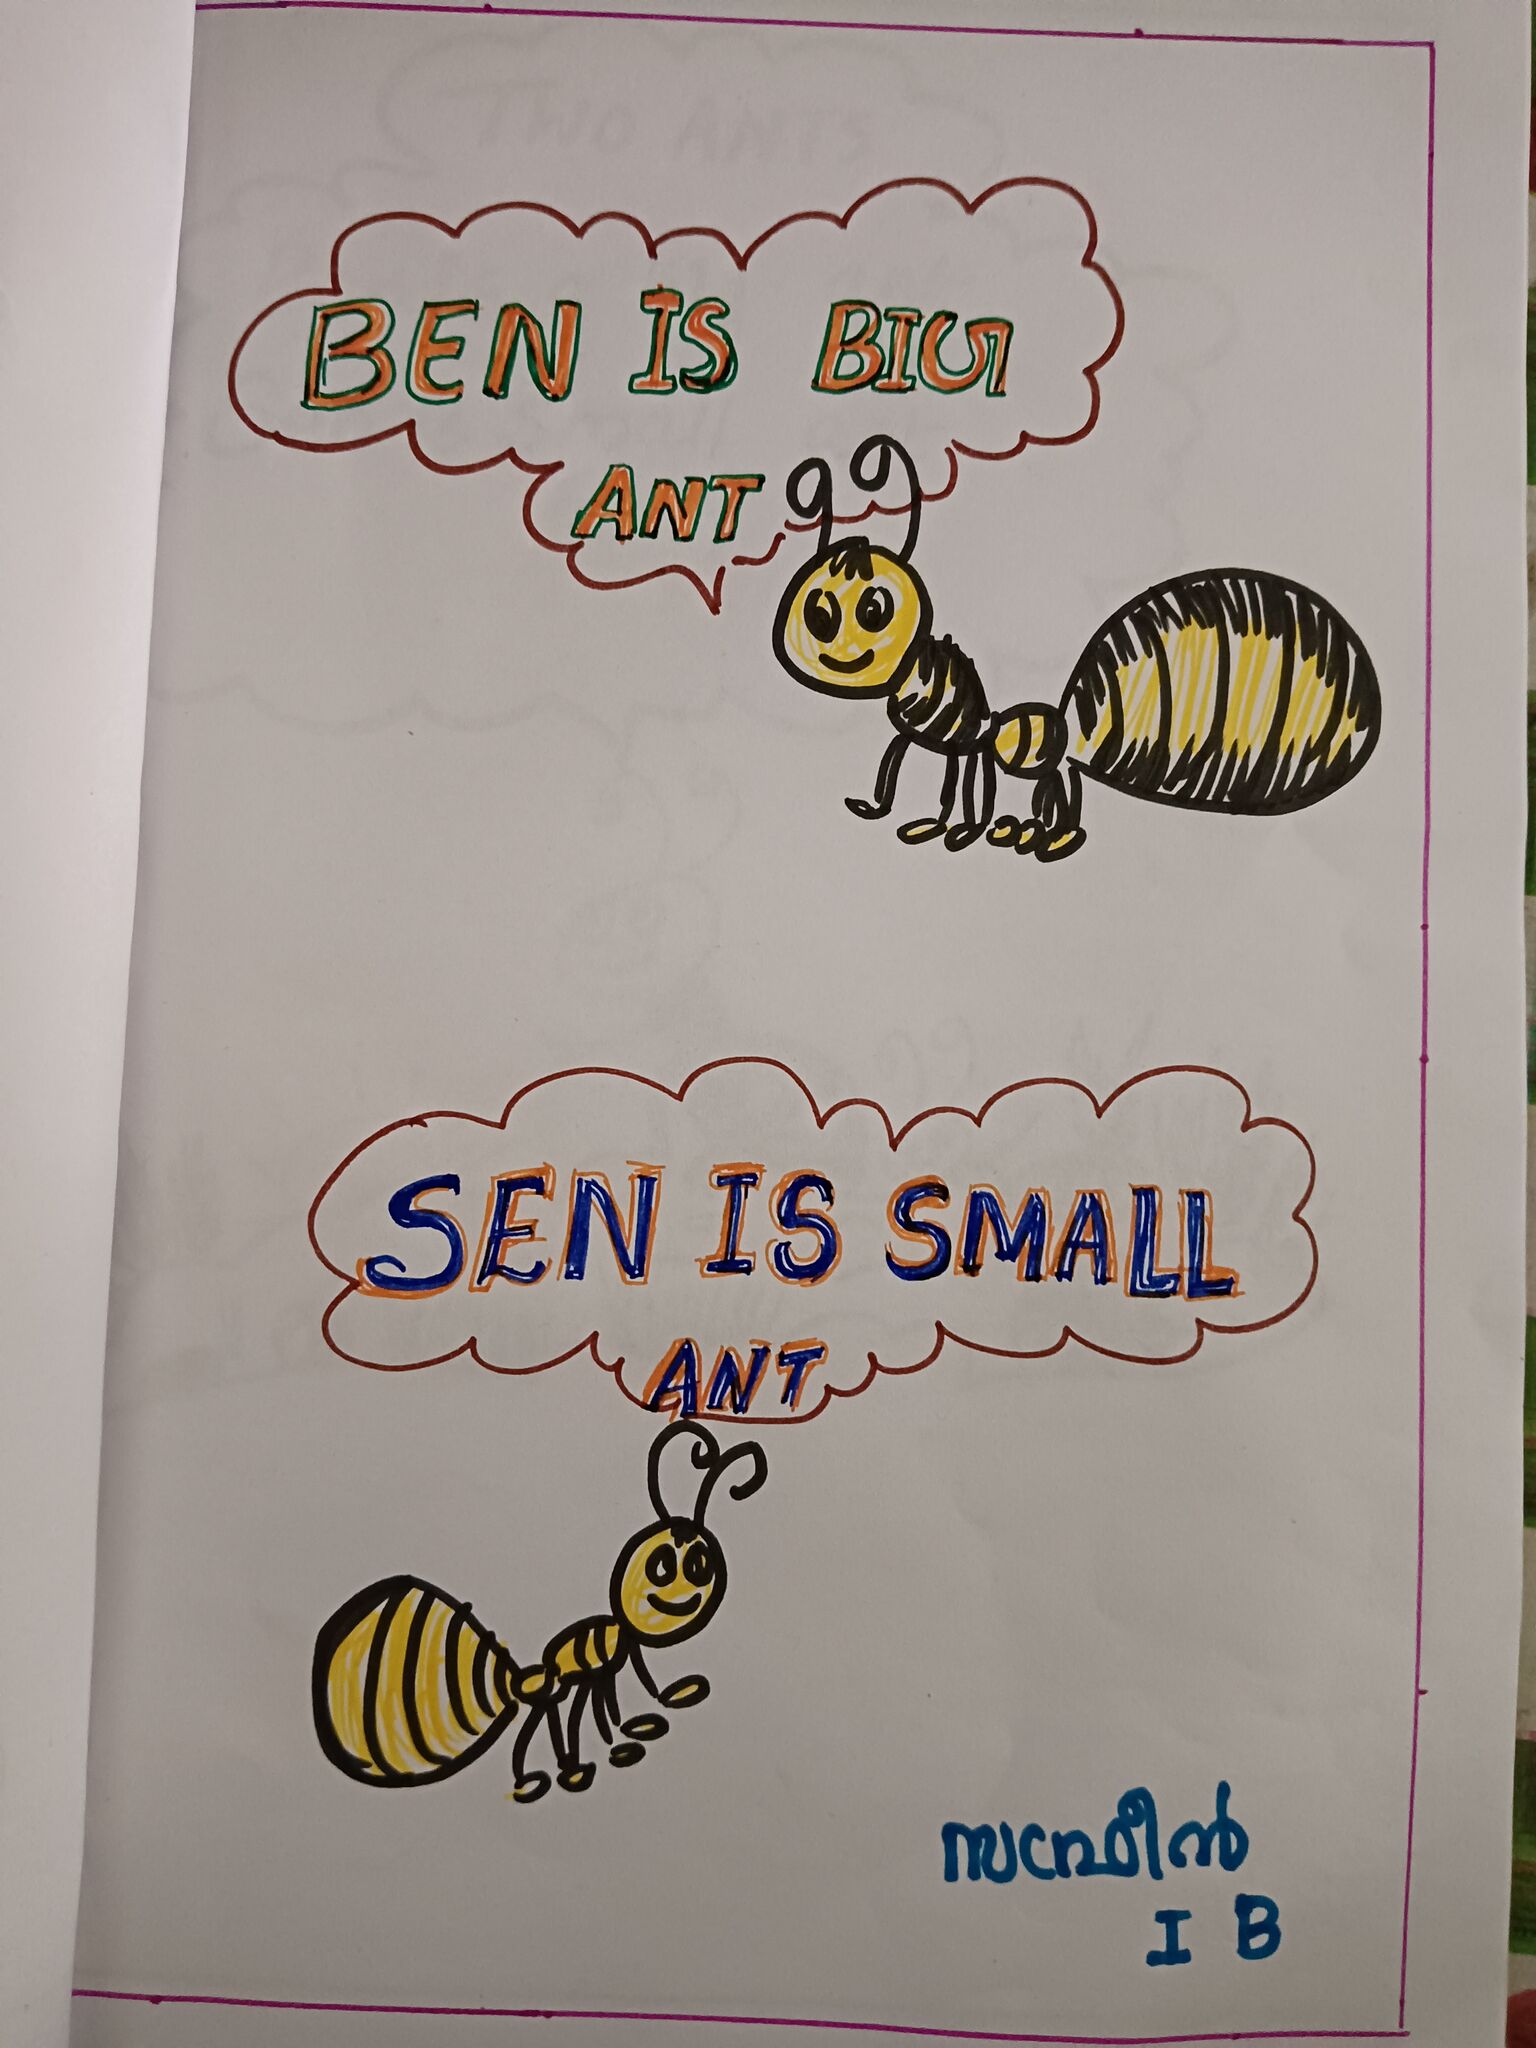 BEN IS BIG
ANT
SEN IS SMALL
ANT
I B